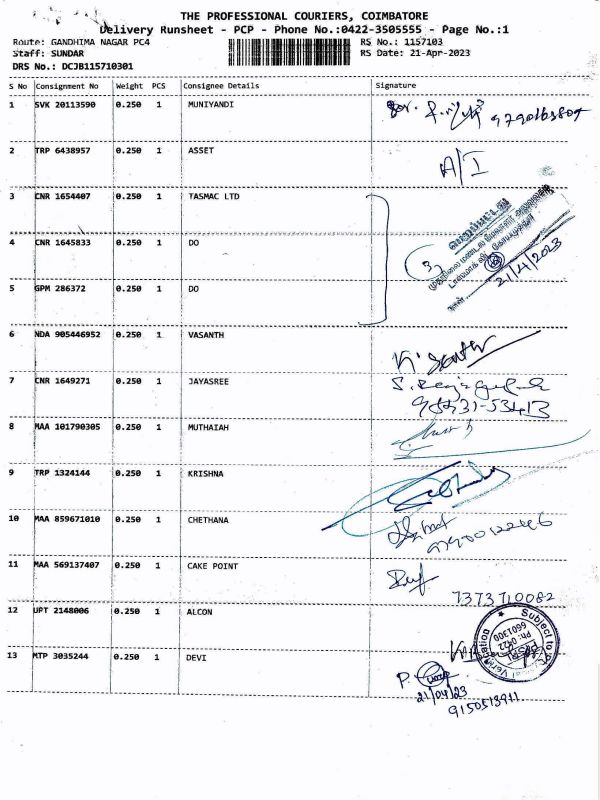 THE PROFESSIONAL COURIERS, COIMBATORE
Delivery Runsheet - PCP - Phone No.:0422-3505555 - Page No.:1
Route: GANDHIMA NAGAR PC4 RS No.: 1157103
Staff: SUNDAR RS Date: 21-Apr-2023
DRS No.: DCJB115710301
S No Consignment No Weight PCS Consignee Details Signature
1 SVK 20113590 0.250 1 MUNIYANDI
2 TRP 6438957 0.250 1 ASSET A/I
3 CNR 1654407 0.250 1 TASMAC LTD
பெறப்பட்டது
4 CNR 1645833 0.250 1 DO 3
21/4/2023
5 GPM 286372 0.250 1 DO
நாள்
6 NDA 905446952 0.250 1 VASANTH
7 CNR 1649271 0.250 1 JAYASREE
8 MAA 101790305 0.250 1 MUTHAIAH
9 TRP 1324144 0.250 1 KRISHNA
10 MAA 859671010 0.250 1 CHETHANA
11 MAA 569137407 0.250 1 CAKE POINT
7373710082
12 UPT 2148006 0.250 1 ALCON
Subject to
PH: 0422
6601300
13 MTP 3035244 0.250 1 DEVI
P.
21/04/23
9150513911